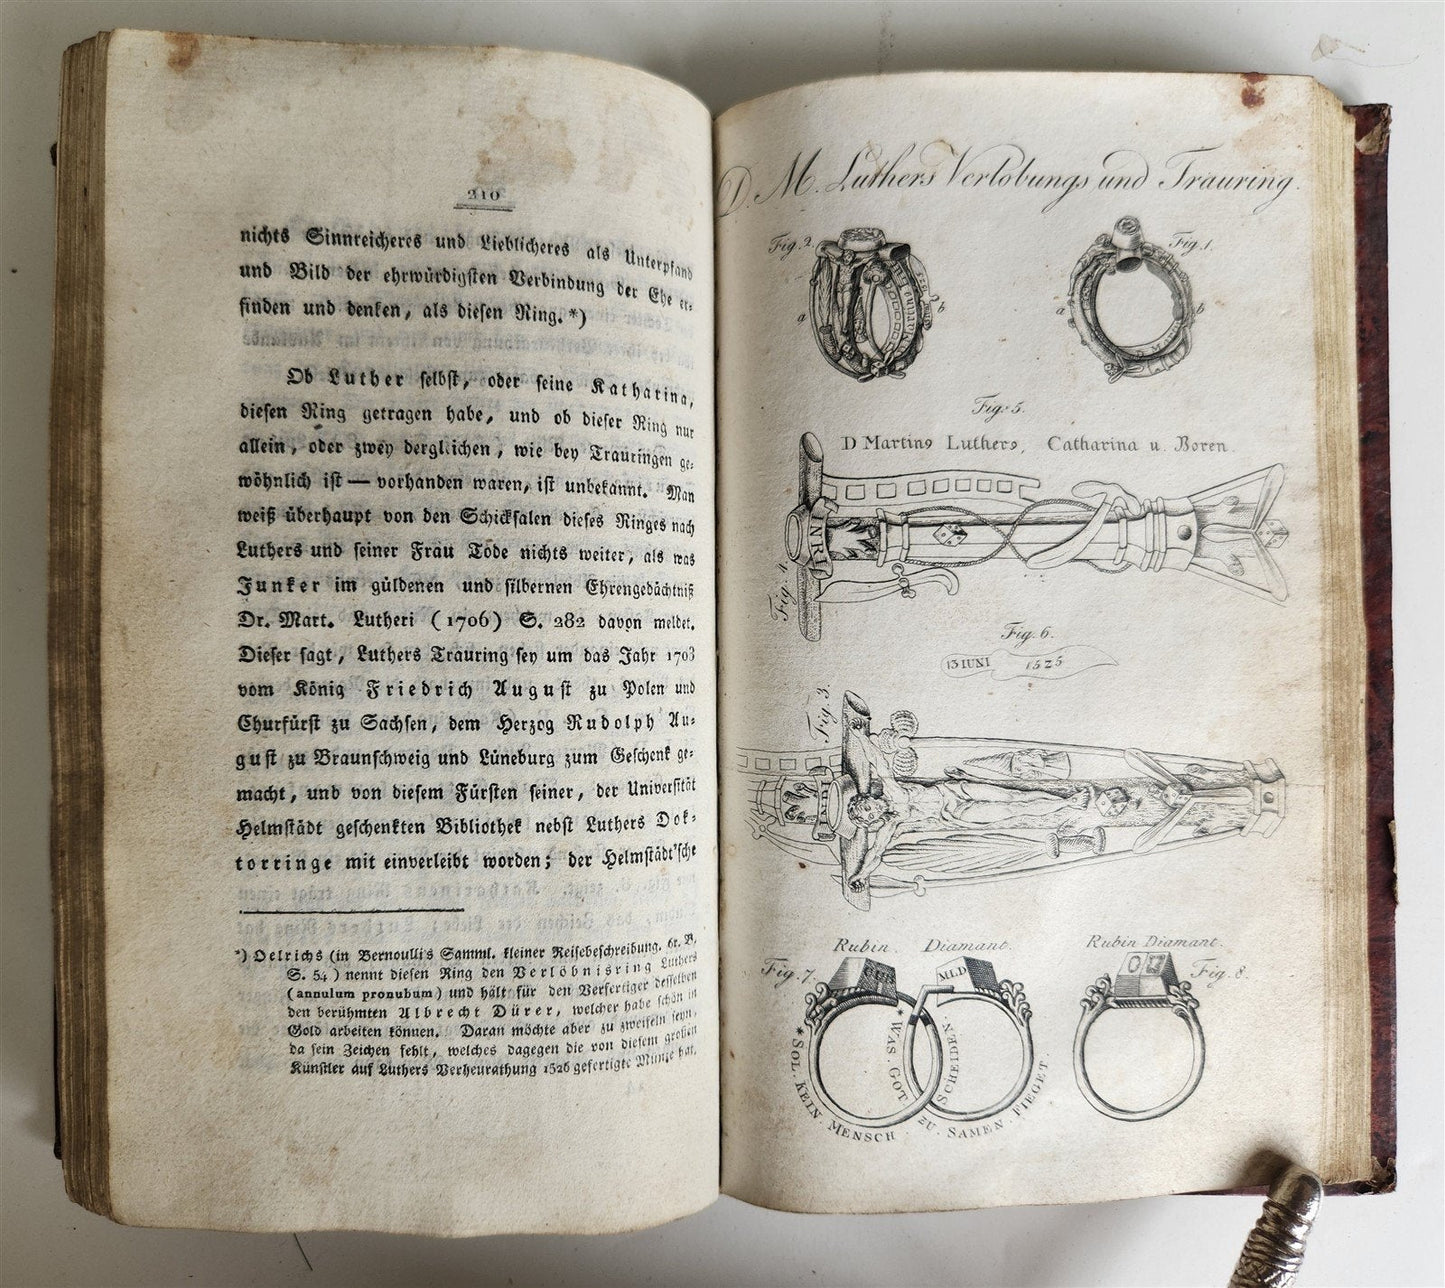 210
nichts Sinnreicheres und Lieblicheres als Unterpfand
und Bild der ehrwürdigsten Verbindung der Ehe er-
finden und denken, als diesen Ring.*)
Ob Luther selbst, oder seine Katharina,
diesen Ring getragen habe, und ob dieser Ring nur
allein, oder zwey dergleichen, wie bey Trauringen ge-
wöhnlich ist — vorhanden waren, ist unbekannt. Man
weiß überhaupt von den Schicksalen dieses Ringes nach
Luthers und seiner Frau Tode nichts weiter, als was
Junker im güldenen und silbernen Ehrengedächtniß
Dr. Mart. Lutheri (1706) S. 282 davon meldet.
Dieser sagt, Luthers Trauring sey um das Jahr 1703
vom König Friedrich August zu Polen und
Churfürst zu Sachsen, dem Herzog Rudolph Au-
gust zu Braunschweig und Lüneburg zum Geschenk ge-
macht, und von diesem Fürsten seiner, der Universität
Helmstädt geschenkten Bibliothek nebst Luthers Dok-
torringe mit einverleibt worden; der Helmstädt'sche
*) Oelrichs (in Bernoulli's Samml. kleiner Reisebeschreibung. 6r. B.
S. 54) nennt diesen Ring den Verlöbnisring Luthers
(annulum pronubum) und hält für den Verfertiger desselben
den berühmten Albrecht Dürer, welcher habe schön in
Gold arbeiten können. Daran möchte aber zu zweifeln seyn,
da sein Zeichen fehlt, welches dagegen die von diesem großen
Künstler auf Luthers Verheurathung 1526 gefertigte Münze hat.
D. M. Luthers Verlobungs und Trauring.
Fig. 2.
Fig. 1.
a
b
a
b
Fig. 5.
D Martino Luthero, Catharina v. Boren.
INRI
Fig. 4.
Fig. 6.
13 IUNI 1525
Fig. 3.
INRI
Rubin. Diamant.
Rubin Diamant.
Fig. 7.
CVB
MLD
Fig. 8.
* WAS . GOT
SCHEIDEN.
* SOL. KEIN. MENSCH .
ZU. SAMEN. FIEGET